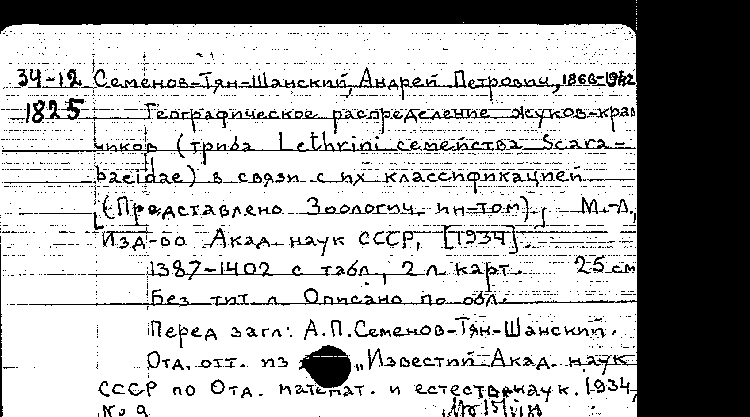 34-12 Семенов-Тян-Шанский, Андрей Петрович, 1866-1942
1825 Географическое распределение жуков-крав
чиков (триба Lethrini семейства Scara=
baeidae) в связи с их классификацией
(Представлено Зоологич. ин-том). М.-Л,
Изд-во Акад. наук СССР, [1934].
1387-1402 с табл, 2 л. карт. 25 см
Без тит. л. Описано по обл.
Перед загл: А.П.Семенов-Тян-Шанский.
Отд. отт. из „Известий Акад. наук
СССР по Отд. математ. и естеств.наук. 1934,
№ 9